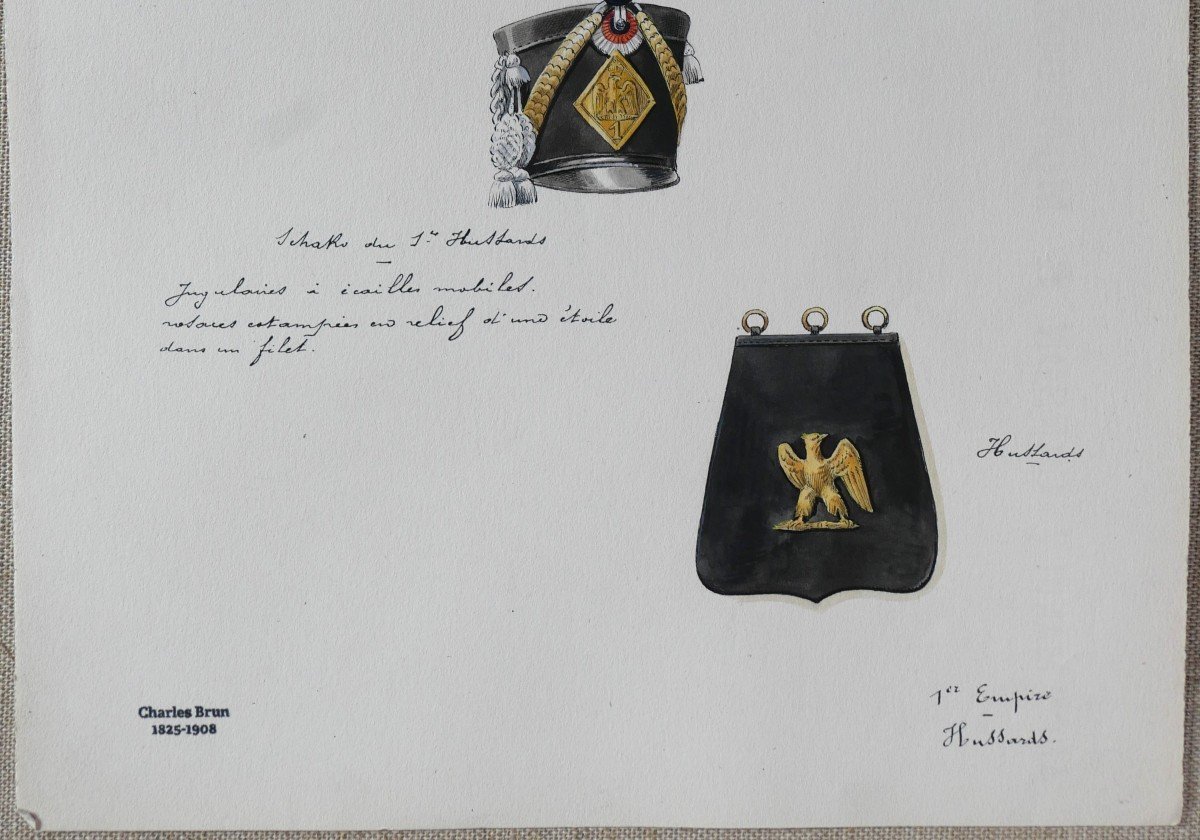 1
Schako du 1er Hussards
Jugulaires à écailles mobiles.
rosaces estampées en relief d'une étoile
dans un filet.
Hussards
Charles Brun
1825-1908
1er Empire
Hussards.